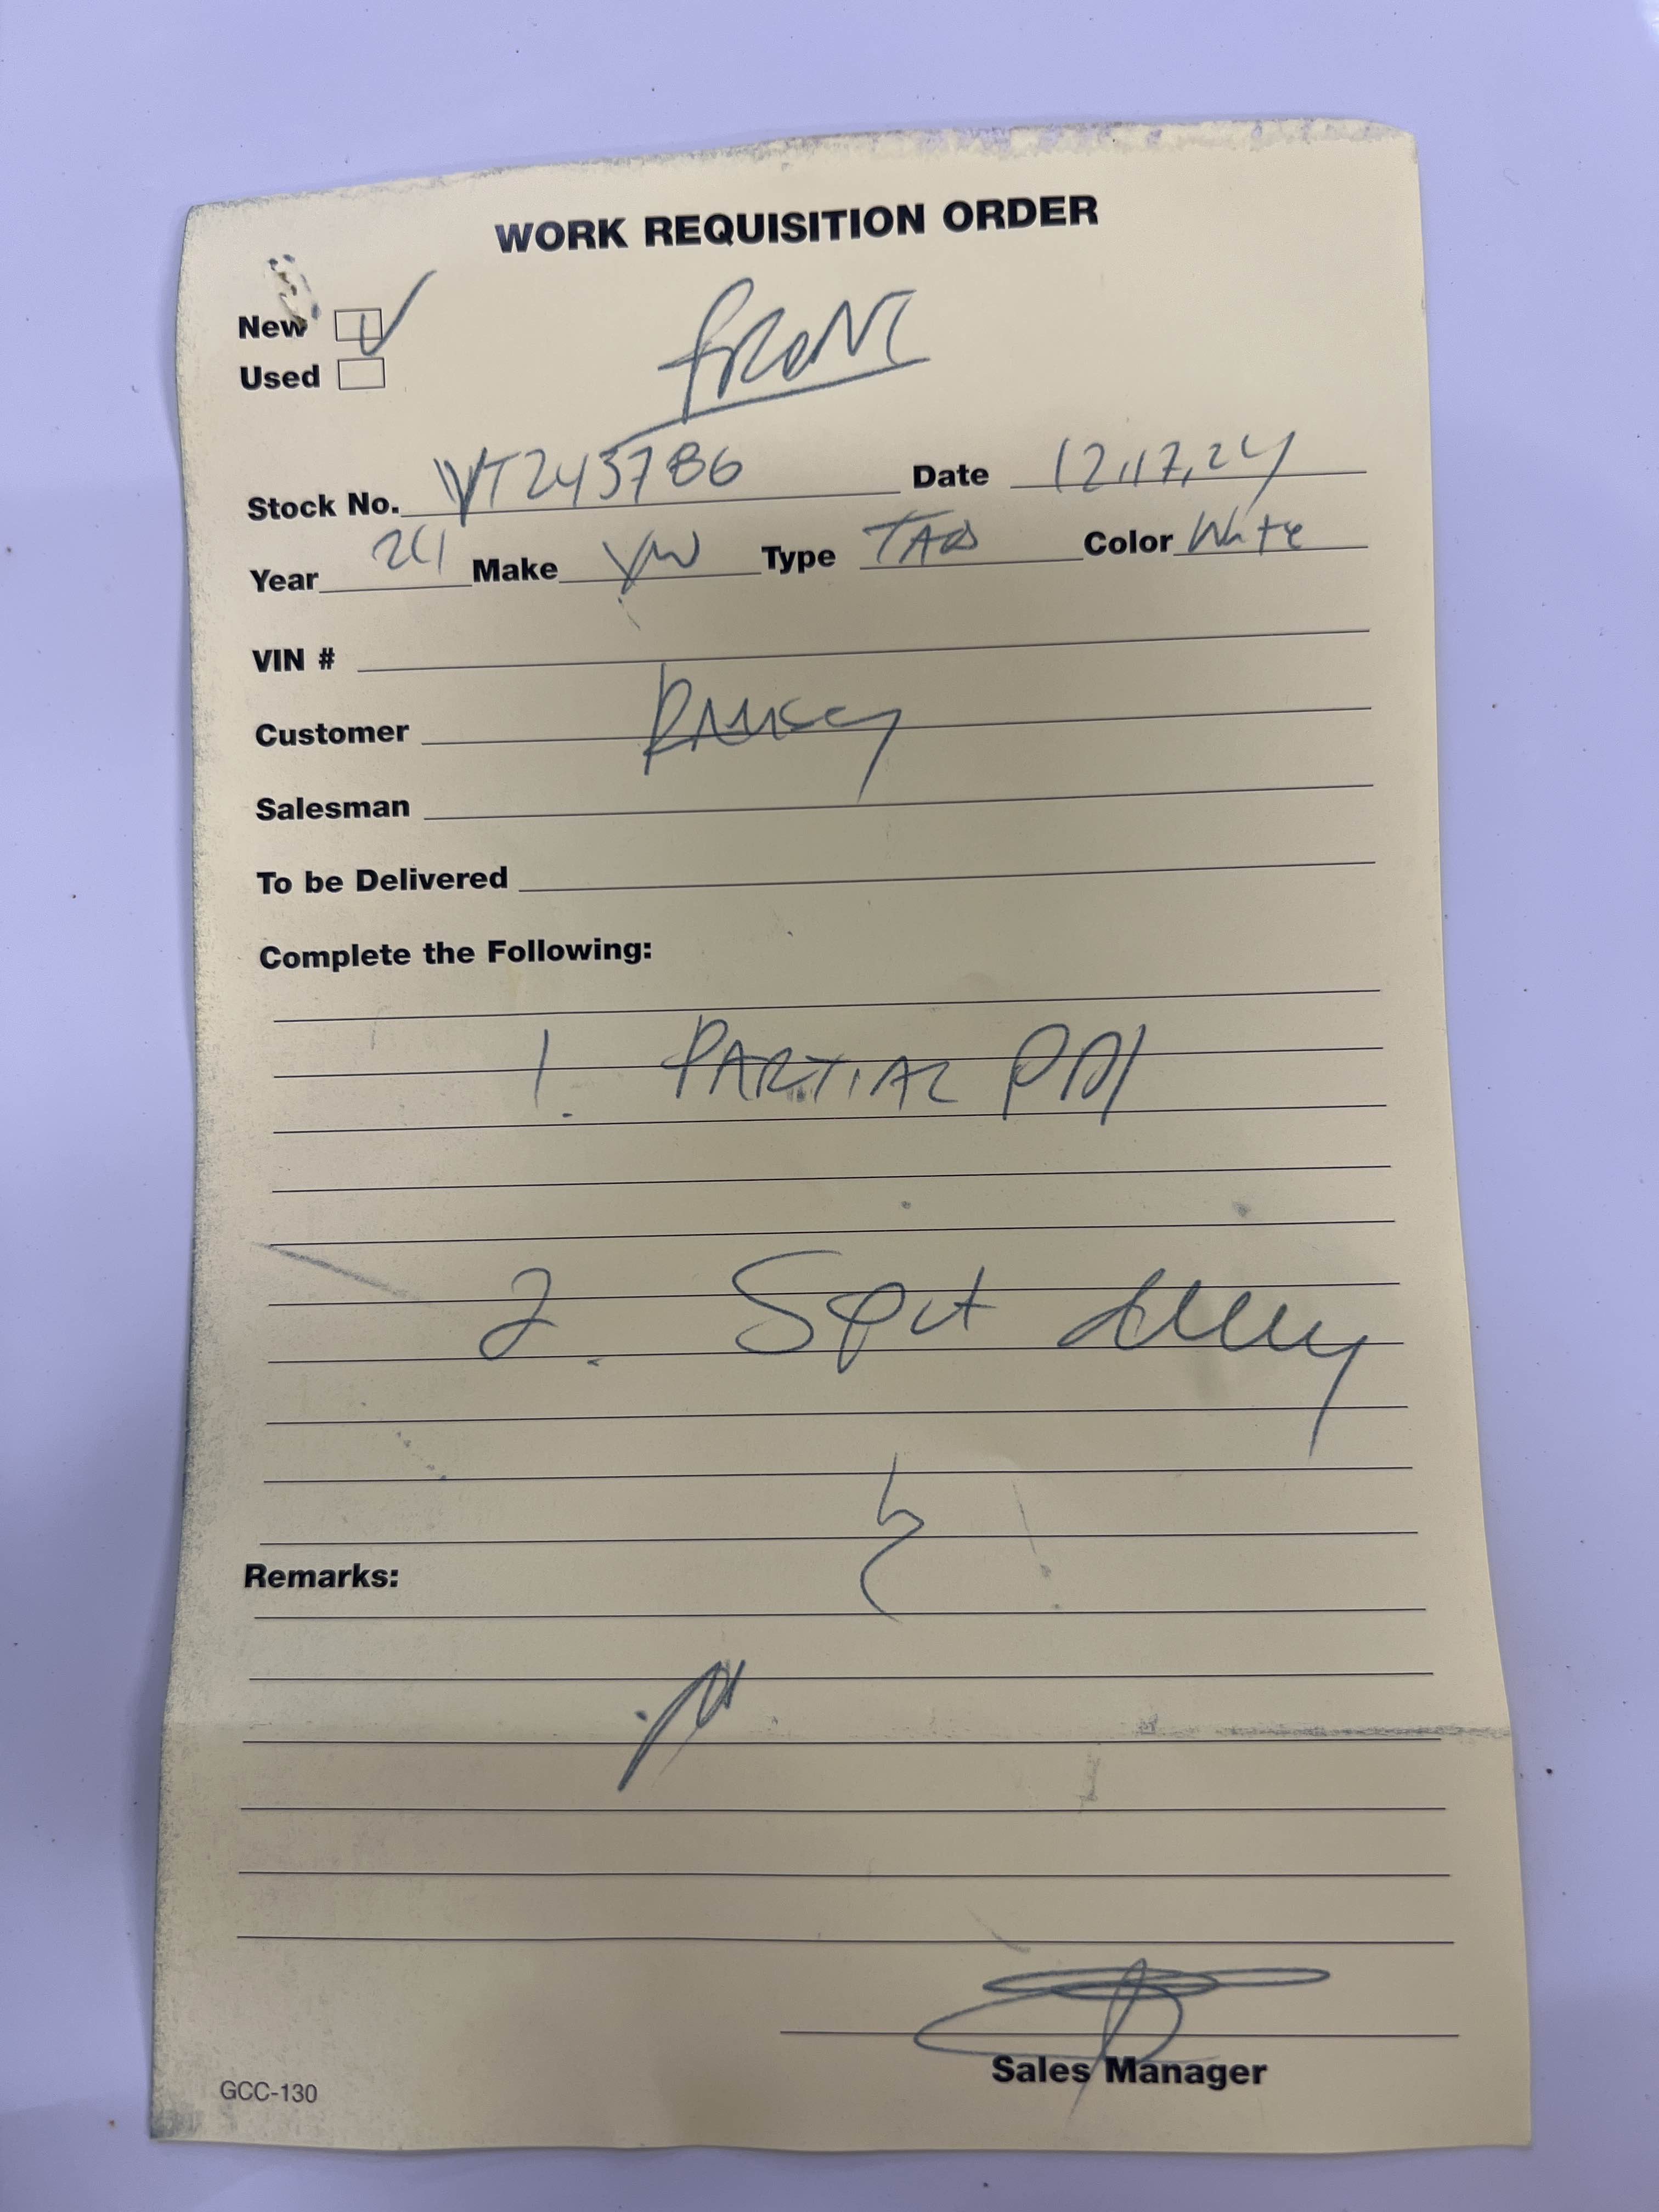 WORK REQUISITION ORDER
New
FRONT
Used
Stock No. VT243786 Date 12,17,24
Year 24 Make VW Type TAO Color White
VIN #
Customer Ramsey
Salesman
To be Delivered
Complete the Following:
1. PARTIAL PDI
2. Spot
Remarks:
Sales Manager
GCC-130